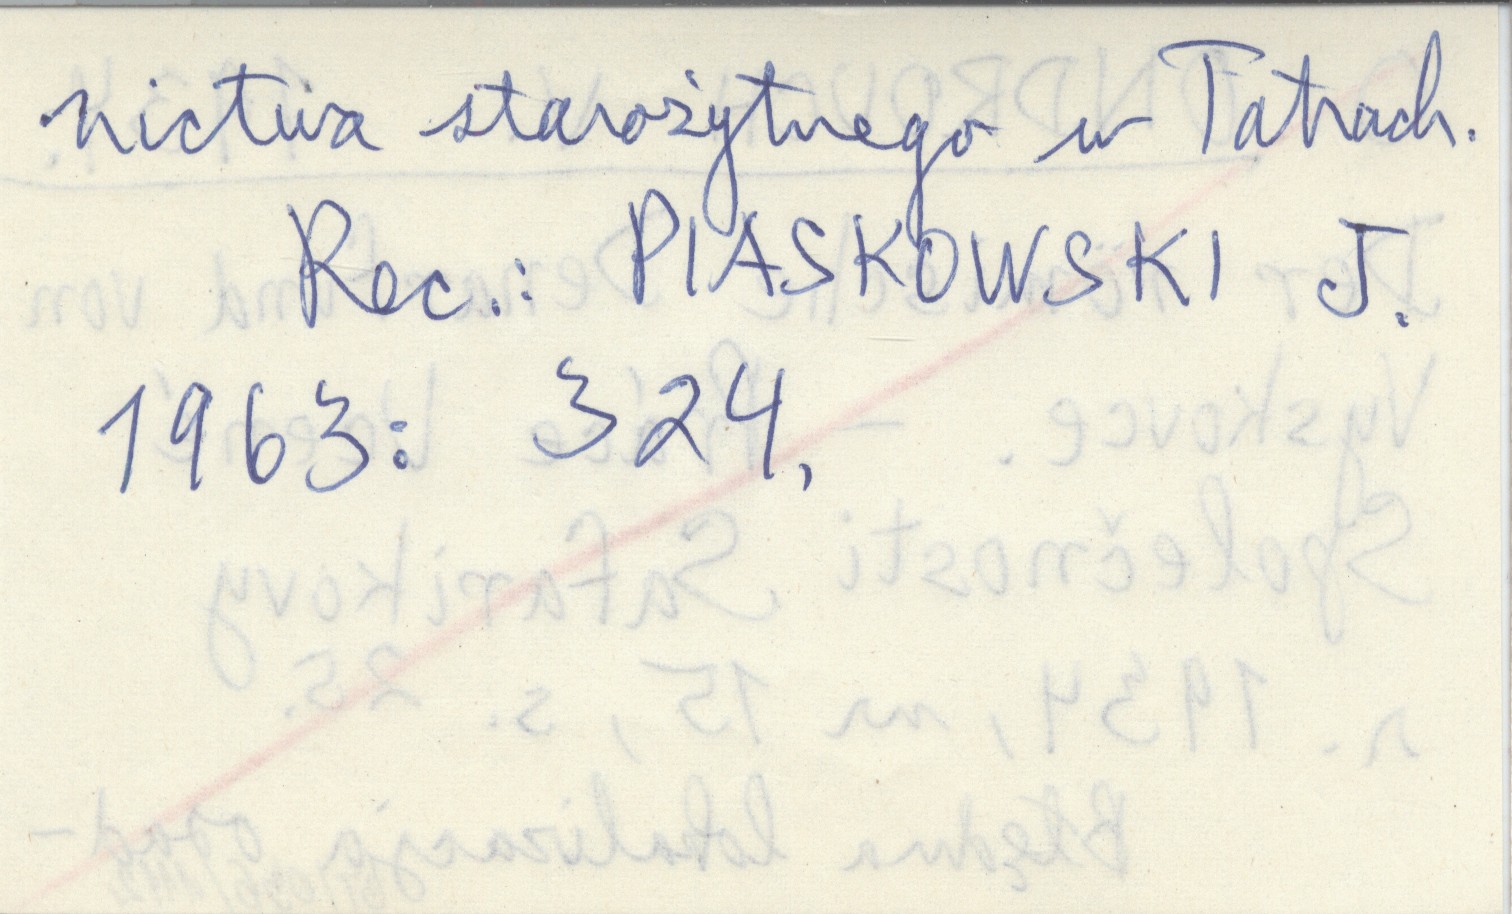 nictwa starożytnego w Tatrach.
Rec.: PIASKOWSKI J.
1963: 324,